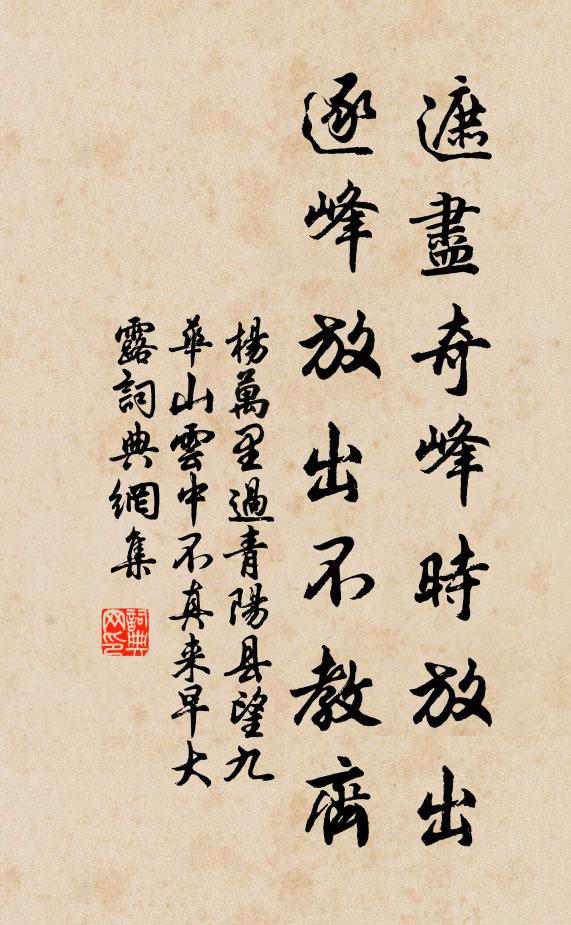 遮盡奇峰時放出
逐峰放出不教齊
楊萬里過青陽县望九
華山雲中不真来早大
露詞典網集
詞典
网印